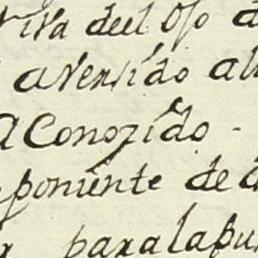 deel Oso
avenido al
a Conozido -
poniente de
para la pu